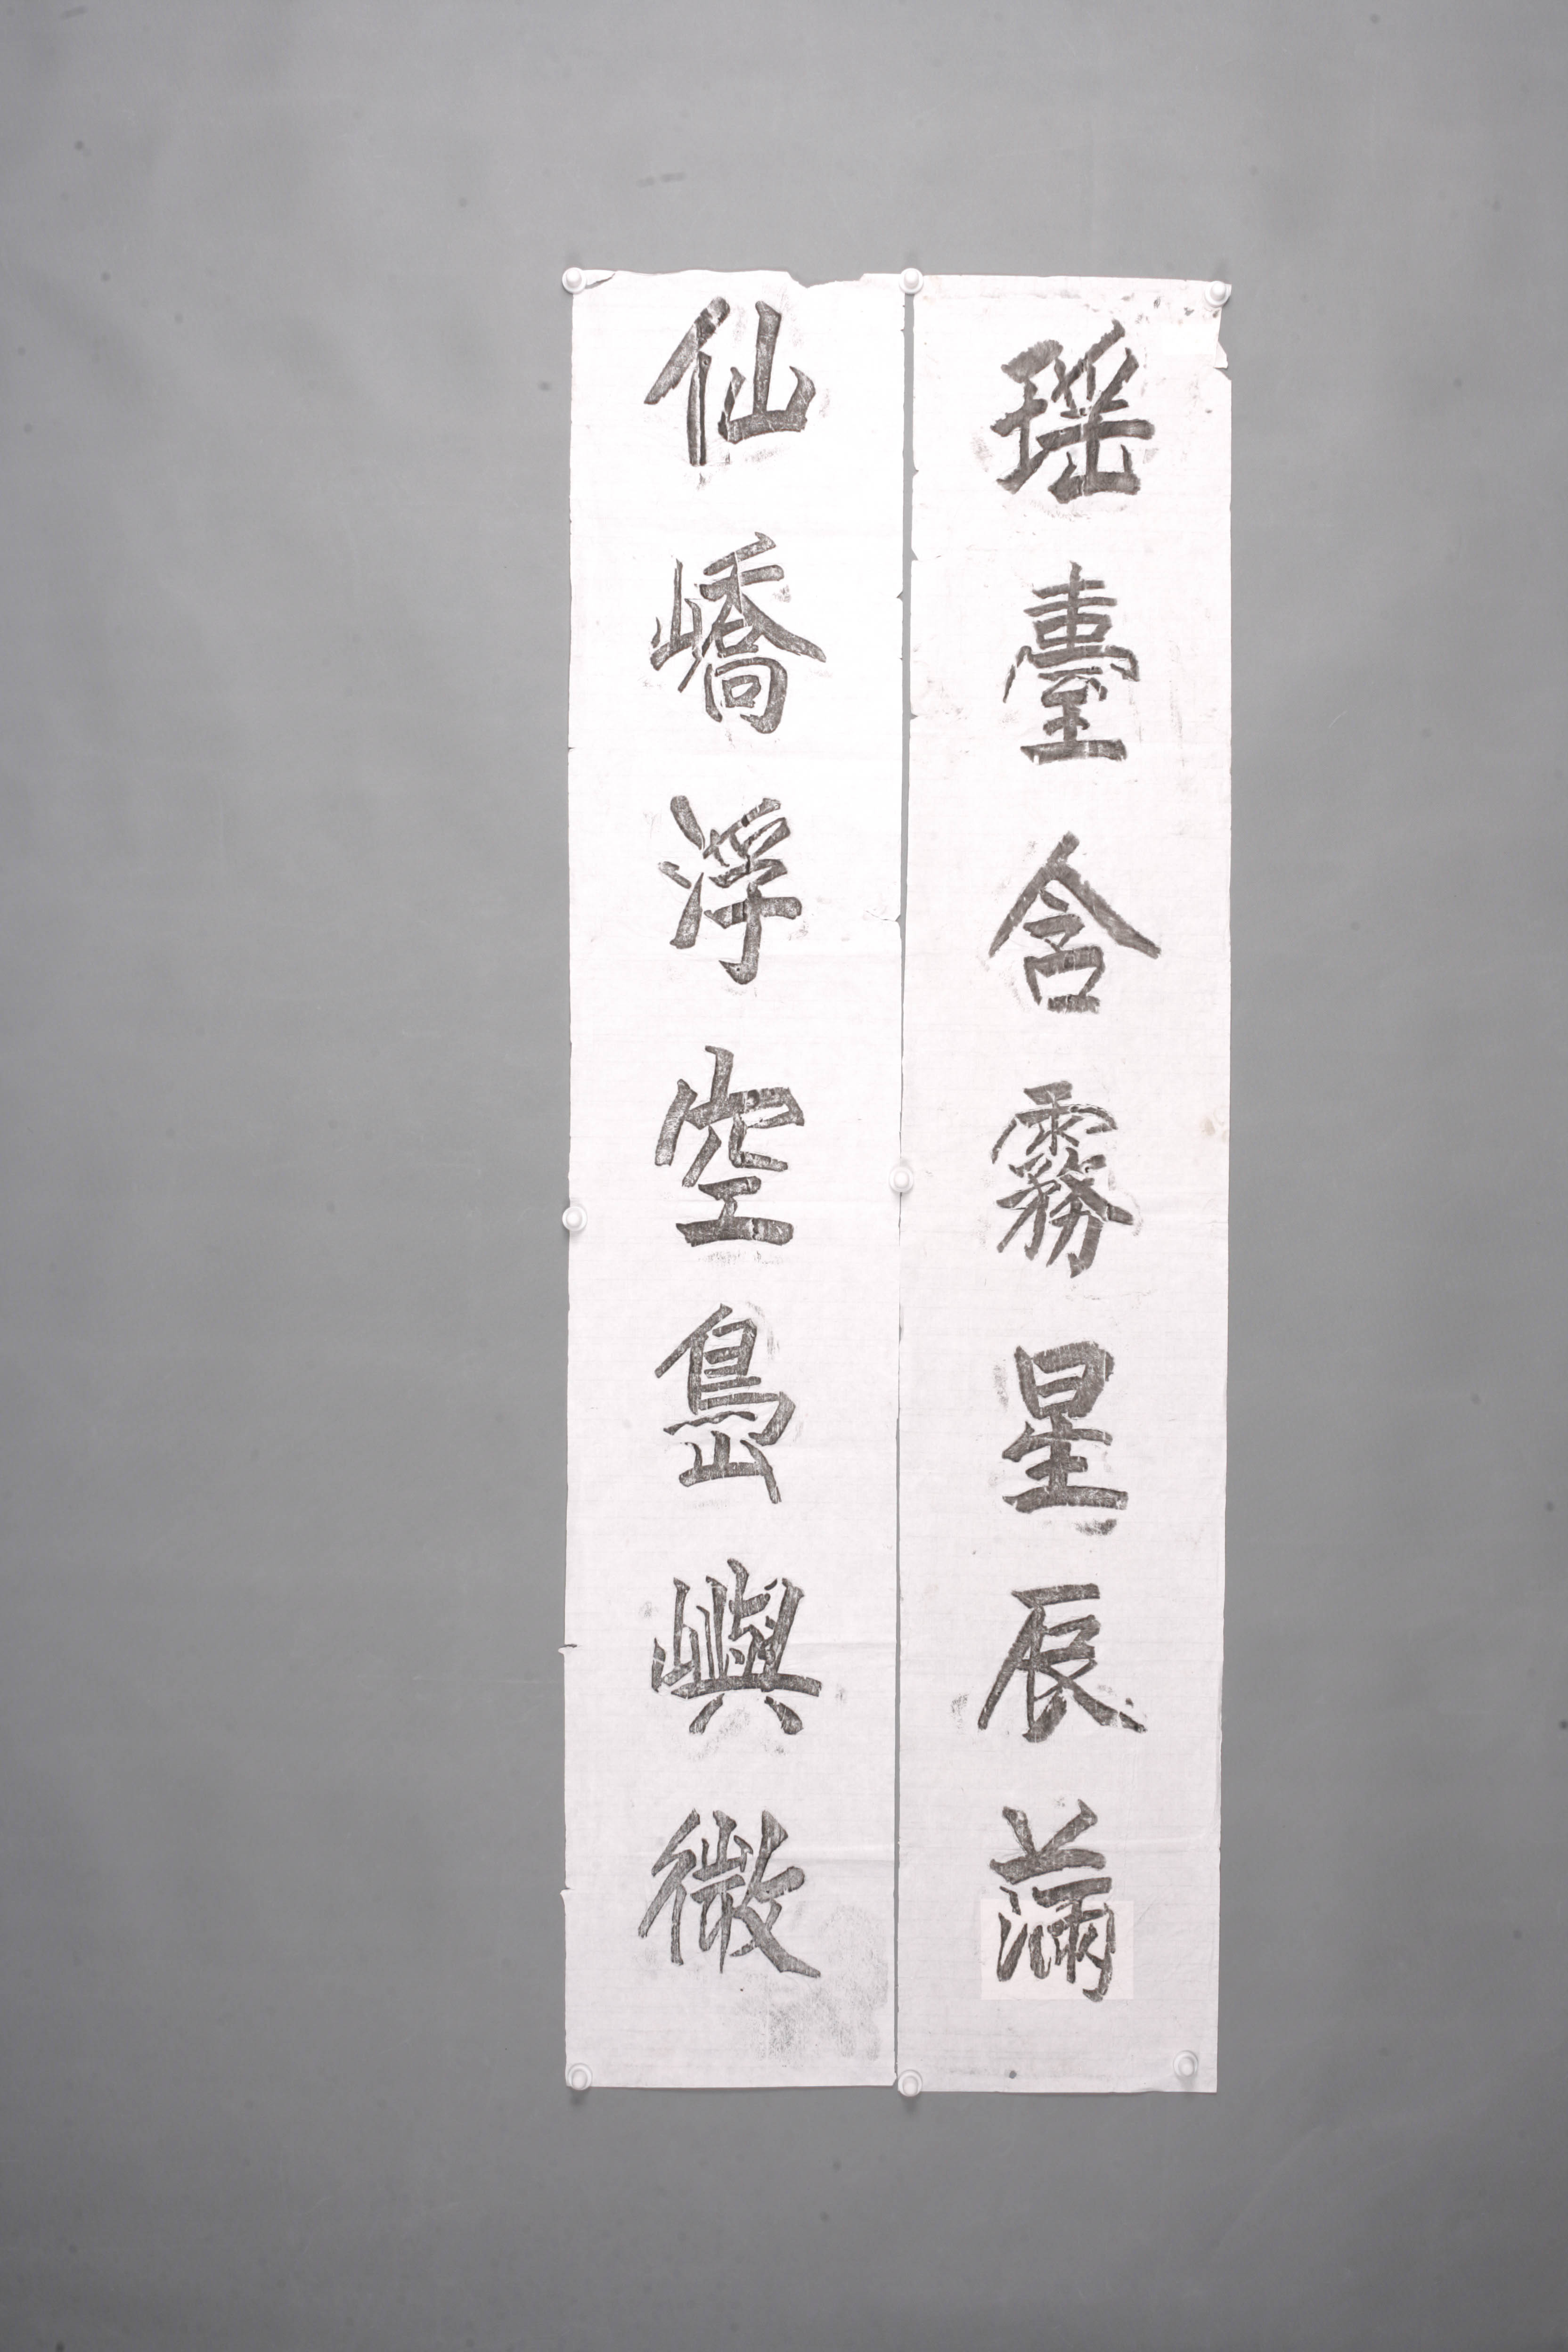 瑶臺含霧星辰滿
仙嶠浮空島嶼微